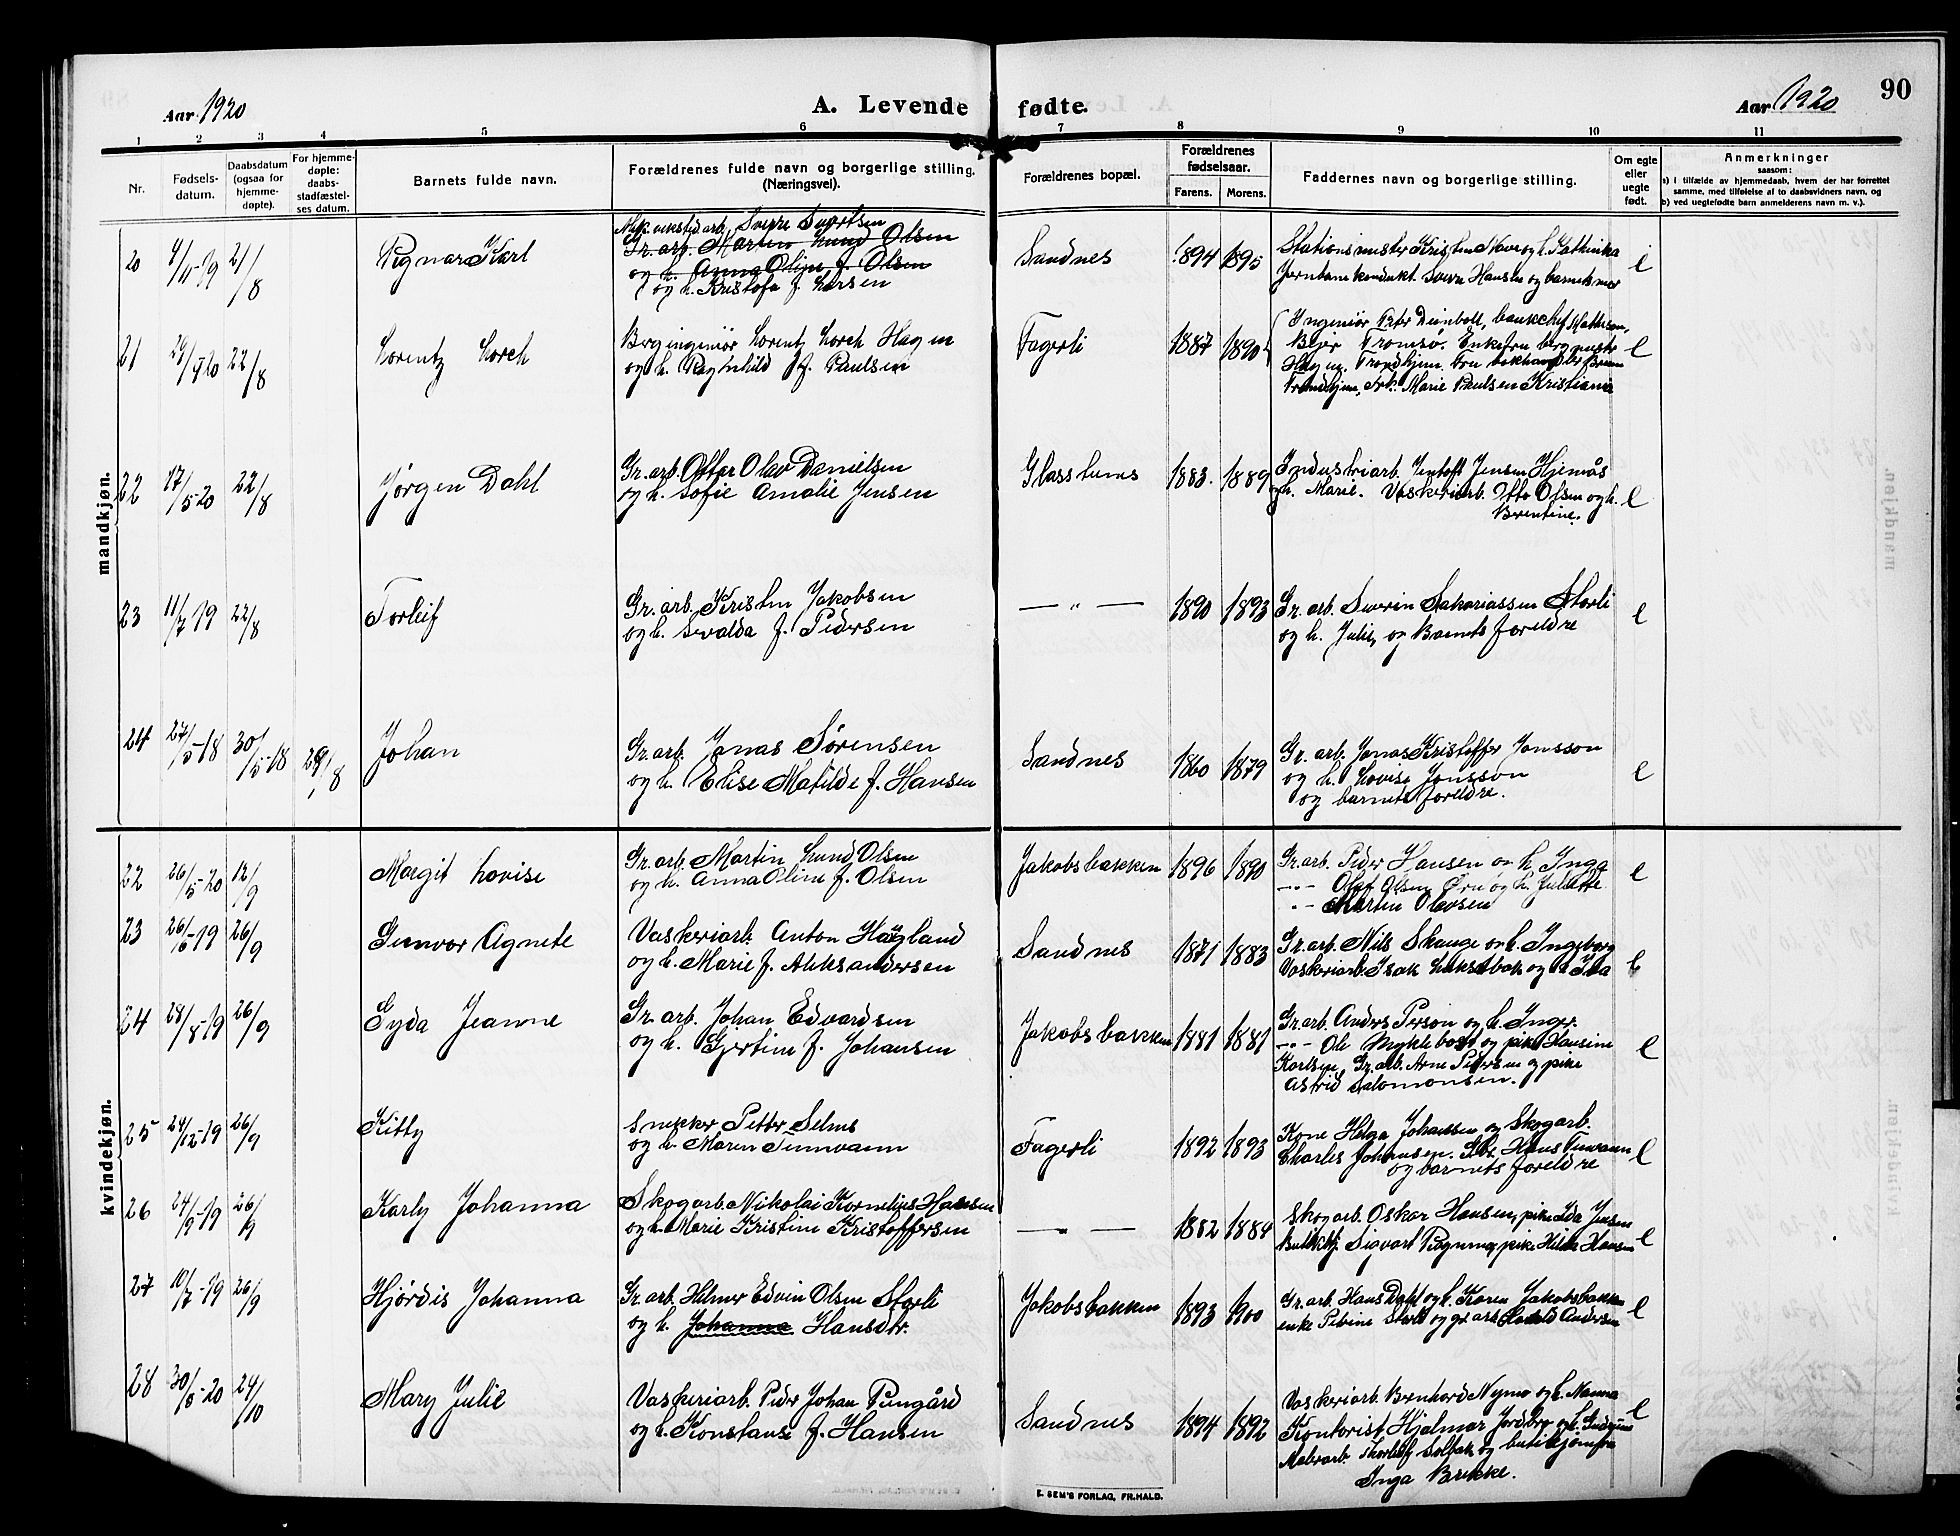 Aar 1920
A. Levende fødte.
Aar 1920
90
1 2 3 4 5 6 7 8 9 10 11
Nr.
Fødsels-
datum.
Daabsdatum
(ogsaa for
hjemme-
døpte).
For hjemme-
døpte:
daabs-
stadfæstel-
ses datum.
Barnets fulde navn.
Forældrenes fulde navn og borgerlige stilling.
(Næringsvei).
Forældrenes bopæl.
Forældrenes
fødselsaar.
Farens. Morens.
Faddernes navn og borgerlige stilling.
Om egte
eller
uegte
født.
Anmerkninger
saasom:
a) i tilfælde av hjemmedaab, hvem der har forrettet
samme, med tilføielse af to daabsvidners navn, og
b) ved uegtefødte barn anmelderens navn m. v.).
mandkjøn.
20 4/11-19 21/8 Ragnar Karl
Sverre Sivertsen
Gr. arb. Martin Lund Olsen
og h. Anna Oline f. Olsen
og h. Kristofa f. Larsen
Sandnes 1894 1895
Hansen og barnets mor
e
21 22/8 Lorentz Lorch
Bergingeniør Lorentz Lorch Hagen
og h. Ragnhild f. Paulsen
Fagerli 1887 1890
Ingeniør Peter Deinboll, bankchef Mathisen,
Tromsø. Enkefru bergmester
Hagen. Trondhjem. Fru
Trondhjem, Frk. Marie Paulsen Kristiania
e
22 17/5-20 22/8 Jørgen Dahl
Gr. arb. Ottar Olav Danielsen
og h. Sofie Amalie Jensen
Glasstunes 1883. 1889
Industriarb. Jentoft Jensen Hjemås
og h. Marie. Vaskeriarb. Otto Olsen og h.
Berntine.
e
23 11/7 19 22/8 Torleif
Gr. arb. Kristen Jakobsen
og h. Sevalda f. Pedersen
— " — 1890 1893
Gr. arb. Severin Sakariassen Storli
og h. Julie, og Barnets foreldre
e
24 27/5-18 30/5-18 29/8 Johan
Gr. arb. Jonas Sørensen
og h. Elise Matilde f. Hansen
Sandnes 1860 1879
Gr. arb. Jonas Kristoffer Jonsson
og h. Lovise Jonsson
og barnets foreldre.
e
kvindekjøn.
22 26/5-20 12/9 Margit Lovise
Gr. arb. Martin Lund Olsen
og h. Anna Oline f. Olsen
Jakobsbakken 1896 1890
Gr. arb. Peder Hansen og h. Inga
-"- Olaf Olsen Ørn og h. Juliette
-"- Martin Olavsen
e
23 26/6-19 26/9 Gunvor Agnete
Vaskeriarb. Anton Hagland
og h. Marie f. Aleksandersen
Sandnes 1871 1883
Gr. arb. Nils Skauge og h. Ingeborg
Vaskeriarb. Isak
e
24 28/8-19 26/9 Gyda Jeanne
Gr. arb. Johan Edvardsen
og h. Gjertine f. Johansen
Jakobsbakken 1881 1881
Gr. arb. Anders Person og h. Inger.
-"- Ole Myklebost og pike Hansine
Karlsen, Gr. arb. Arne Pedersen og pike
Astrid Salomonsen.
e
25 24/12-19 26/9 Kitty
Snekker Petter Selnes
og h. Maren Finnvann
Fagerli 1892 1893
Kone Helga Johansen og Skogarb.
Charles Johansen. Hans Finvann
og barnets foreldre
e
26 24/9-19 26/9 Karly Johanna
Skogarb. Nikolai Kornelius Hansen
og h. Marie Kristine Kristoffersen
— — 1882 1884
Skogarb. Oskar Hansen, pike Ida Jensen
Sigvart pike Hilda Hansen
e
27 10/7-19 26/9 Hjørdis Johanna
Gr. arb. Helmer Edvin Olsen Storli
og h. Johanna Hansdtr.
Jakobsbakken 1893 1900
Gr. arb. Hans Dahl og h. Karen Jakobsbakken
enke Petrine Storli og gr. arb. Harald Andersen
e
28 30/8-20 24/10 Mary Julie
Vaskeriarb. Peder Johan Pungård
og h. Konstanse f. Hansen
Sandnes 1894 1892
Vaskeriarb. Bernhard Nymo og h. Nanna
Kontorist Hjalmar Jordbro og h. Gudrun
Malerarb. Solbak og butikjomfru
Inga Brekke.
e
E. SEM'S FORLAG, FR.HALD.